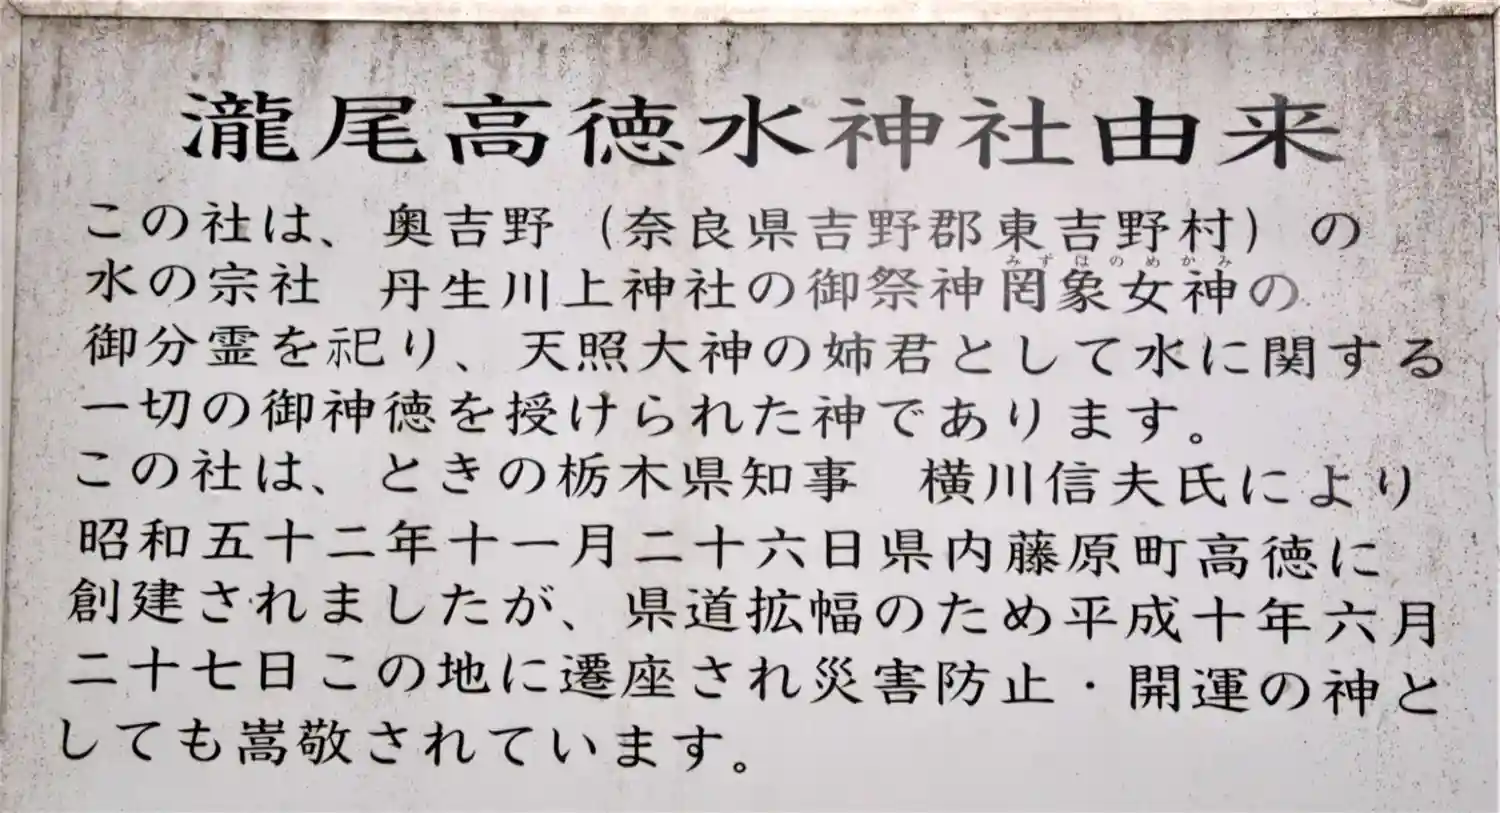 瀧尾高徳水神社由来
この社は、奥吉野（奈良県吉野郡東吉野村）の
みずはのめかみ
水の宗社　丹生川上神社の御祭神罔象女神の
御分霊を祀り、天照大神の姉君として水に関する
一切の御神徳を授けられた神であります。
この社は、ときの栃木県知事　横川信夫氏により
昭和五十二年十一月二十六日県内藤原町高徳に
創建されましたが、県道拡幅のため平成十年六月
二十七日この地に遷座され災害防止・開運の神と
しても嵩敬されています。